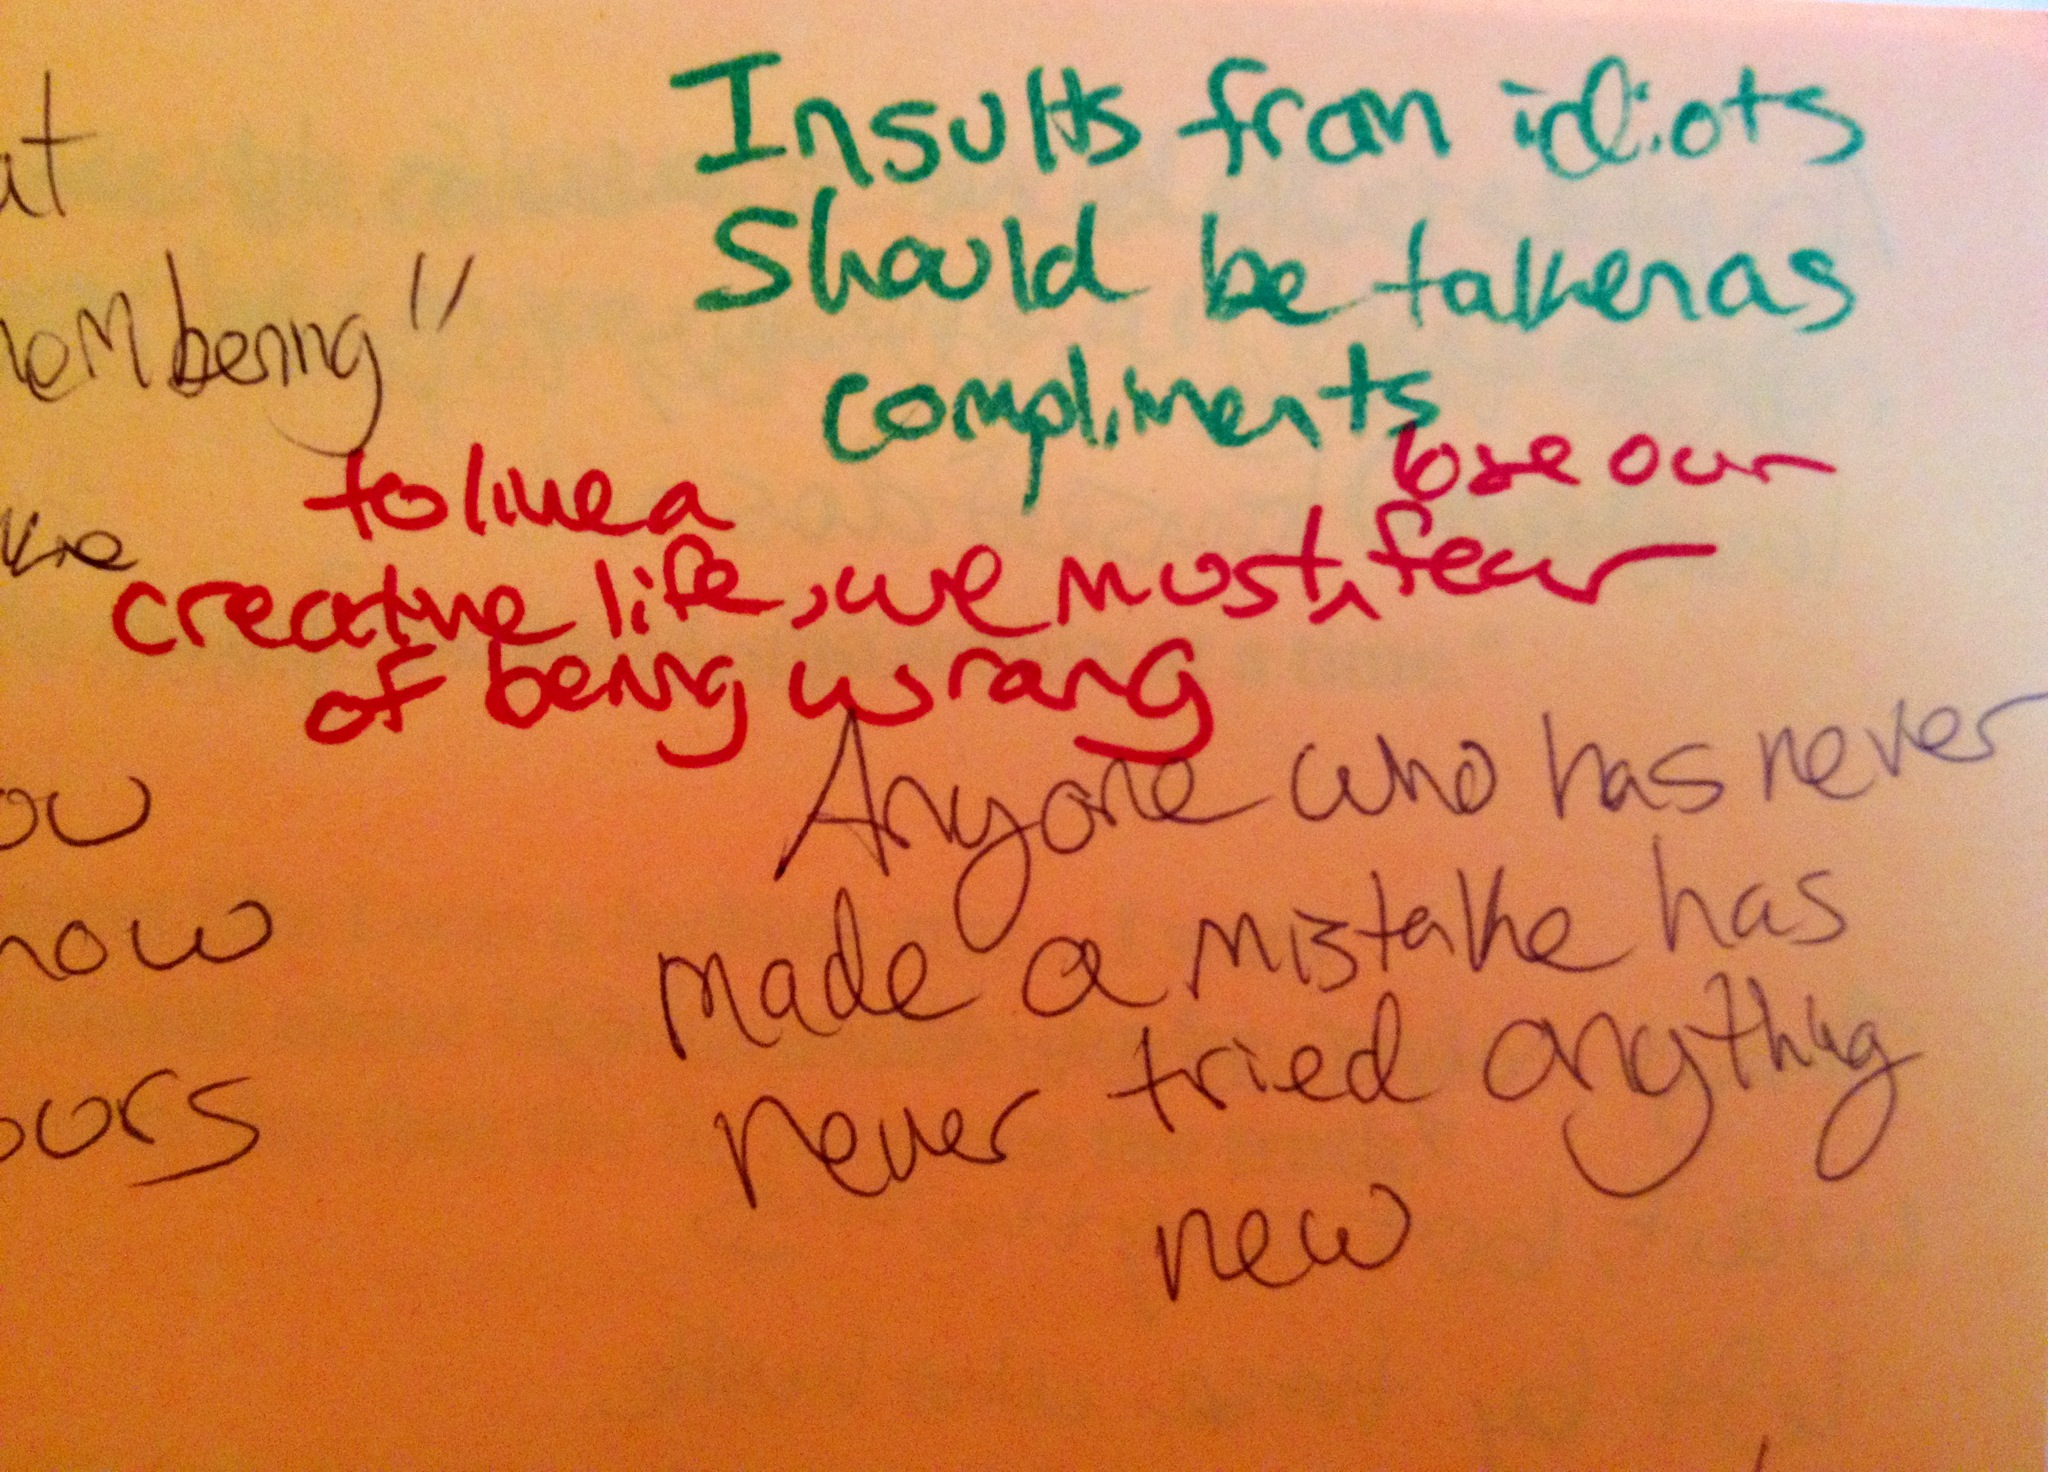 Insults from idiots
Should be taken as
compliments
to live a
creative life, we must lose our fear
of being wrong
Anyone who has never
made a mistake has
never tried anything
new
at
bering"
ow
now
ours